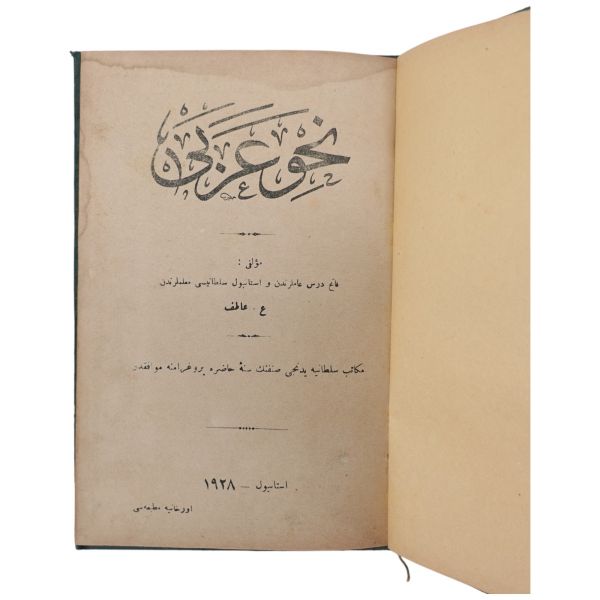 نحو عربی
مؤلفی :
فاتح درس عاملرندن و استانبول سلطانیسی معلملرندن
ع . عاطف
مكاتب سلطانیه یدنجی صنفنك سنۀ حاضره پروغرامنه موافقدر
استانبول – ١٩٢٨
اورخانیه مطبعه‌سی